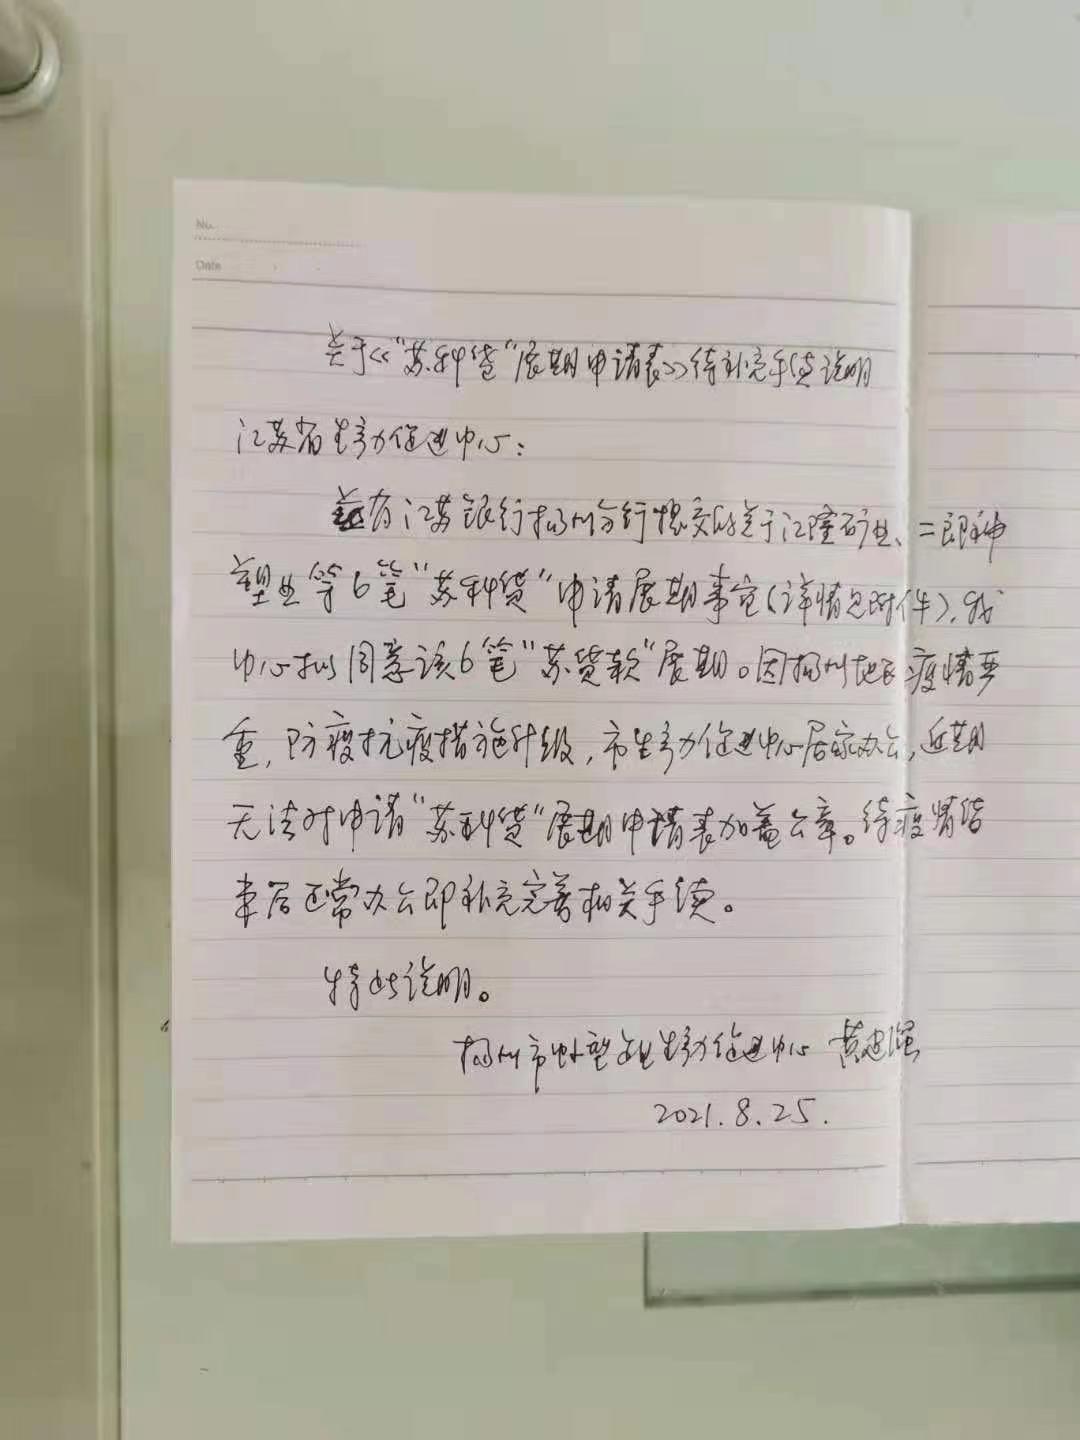 No.
Date
关于《“苏科贷”展期申请表》待补充手续说明
江苏省生产力促进中心：
兹有江苏银行扬州分行提交的关于江隆矿业、二郎神
塑业等6笔“苏科贷”申请展期事宜（详情见附件），我
中心拟同意该6笔“苏贷款”展期。因扬州地区疫情严
重，防疫抗疫措施升级，市生产力促进中心居家办公，近期
无法对申请“苏科贷”展期申请表加盖公章。待疫情结
束后正常办公即补充完善相关手续。
特此说明。
扬州市生产力促进中心 黄建强
2021.8.25.